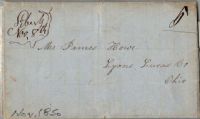 Nov. 8th
Mr James Howe
Lyons Lucas Co
Ohio
Nov. 1850